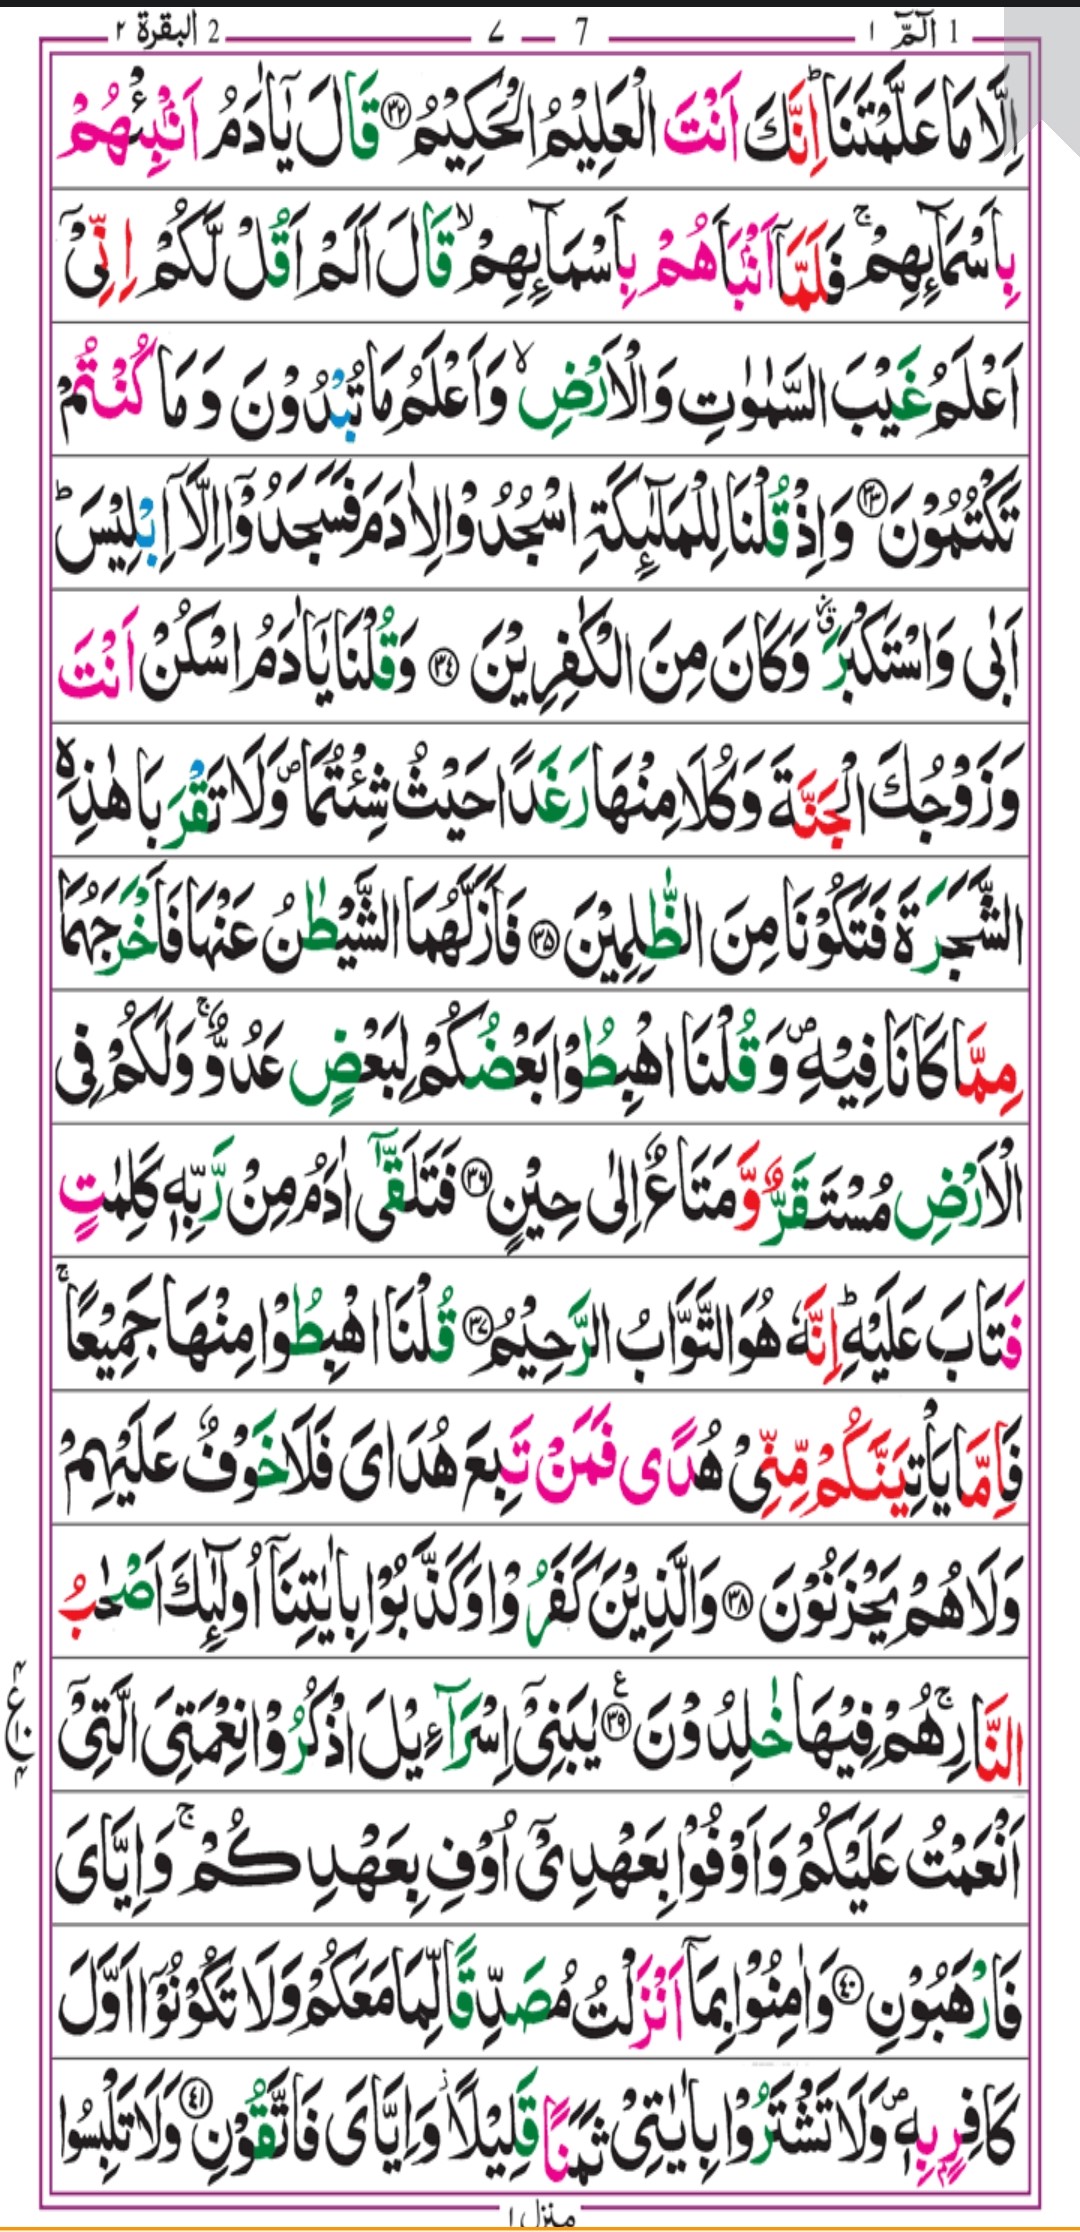 1 الٓمّٓ ١ 7 — ٧ 2 البقرة ٢
اِلَّا مَا عَلَّمْتَنَا ؕ اِنَّكَ اَنْتَ الْعَلِيْمُ الْحَكِيْمُ ﴿۳۲﴾ قَالَ يٰٓاٰدَمُ اَنْۢبِئْهُمْ
بِاَسْمَآئِهِمْ ۚ فَلَمَّآ اَنْۢبَاَهُمْ بِاَسْمَآئِهِمْ ۙ قَالَ اَلَمْ اَقُلْ لَّكُمْ اِنِّىْٓ
اَعْلَمُ غَيْبَ السَّمٰوٰتِ وَالْاَرْضِ ۙ وَاَعْلَمُ مَا تُبْدُوْنَ وَ مَا كُنْتُمْ
تَكْتُمُوْنَ ﴿۳۳﴾ وَاِذْ قُلْنَا لِلْمَلٰٓئِكَةِ اسْجُدُوْا لِاٰدَمَ فَسَجَدُوْٓا اِلَّآ اِبْلِيْسَ ؕ
اَبٰى وَاسْتَكْبَرَ ۗ وَكَانَ مِنَ الْكٰفِرِيْنَ ﴿۳٤﴾ وَقُلْنَا يٰٓاٰدَمُ اسْكُنْ اَنْتَ
وَزَوْجُكَ الْجَنَّةَ وَكُلَا مِنْهَا رَغَدًا حَيْثُ شِئْتُمَا ۖ وَلَا تَقْرَبَا هٰذِهِ
الشَّجَرَةَ فَتَكُوْنَا مِنَ الظّٰلِمِيْنَ ﴿۳۵﴾ فَاَزَلَّهُمَا الشَّيْطٰنُ عَنْهَا فَاَخْرَجَهُمَا
مِمَّا كَانَا فِيْهِ ۖ وَ قُلْنَا اهْبِطُوْا بَعْضُكُمْ لِبَعْضٍ عَدُوٌّ ۚ وَلَكُمْ فِى
الْاَرْضِ مُسْتَقَرٌّ وَّ مَتَاعٌ اِلٰى حِيْنٍ ﴿۳۶﴾ فَتَلَقّٰٓى اٰدَمُ مِنْ رَّبِّهٖ كَلِمٰتٍ
فَتَابَ عَلَيْهِ ؕ اِنَّهٗ هُوَ التَّوَّابُ الرَّحِيْمُ ﴿۳۷﴾ قُلْنَا اهْبِطُوْا مِنْهَا جَمِيْعًا ۚ
فَاِمَّا يَاْتِيَنَّكُمْ مِّنِّىْ هُدًى فَمَنْ تَبِعَ هُدَاىَ فَلَا خَوْفٌ عَلَيْهِمْ
وَلَا هُمْ يَحْزَنُوْنَ ﴿۳۸﴾ وَالَّذِيْنَ كَفَرُوْا وَكَذَّبُوْا بِاٰيٰتِنَآ اُولٰٓئِكَ اَصْحٰبُ
النَّارِ ۚ هُمْ فِيْهَا خٰلِدُوْنَ ﴿۳۹﴾ يٰبَنِىْٓ اِسْرَآءِيْلَ اذْكُرُوْا نِعْمَتِىَ الَّتِىْٓ
اَنْعَمْتُ عَلَيْكُمْ وَاَوْفُوْا بِعَهْدِىْٓ اُوْفِ بِعَهْدِكُمْ ۚ وَاِيَّاىَ
فَارْهَبُوْنِ ﴿٤۰﴾ وَاٰمِنُوْا بِمَآ اَنْزَلْتُ مُصَدِّقًا لِّمَا مَعَكُمْ وَلَا تَكُوْنُوْٓا اَوَّلَ
كَافِرٍۢ بِهٖ ۖ وَلَا تَشْتَرُوْا بِاٰيٰتِىْ ثَمَنًا قَلِيْلًا ۫ وَاِيَّاىَ فَاتَّقُوْنِ ﴿٤۱﴾ وَلَا تَلْبِسُوا
منزل ١